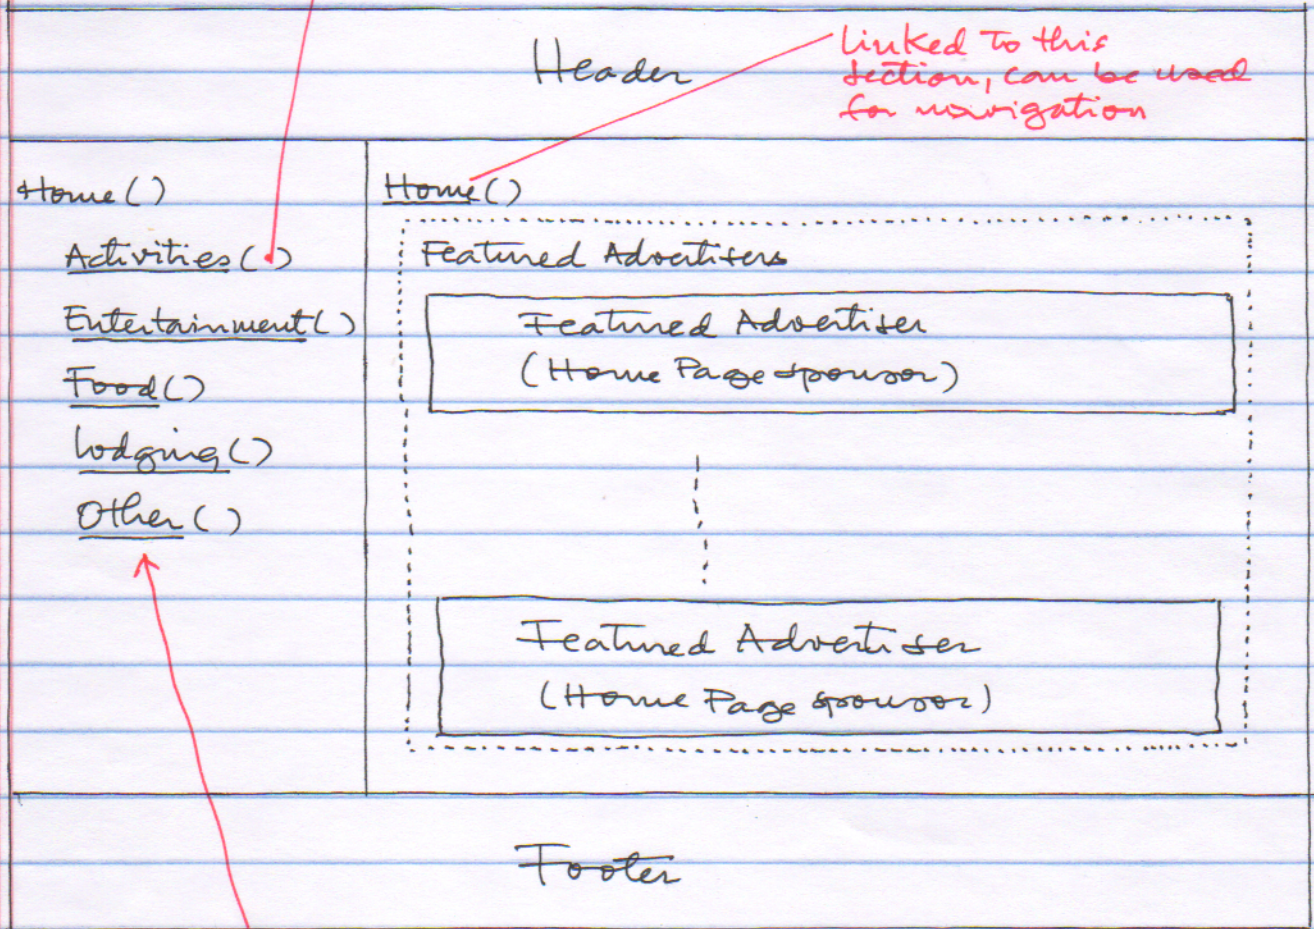 Header
Linked To this
section, can be used
for navigation
Home()
Activities()
Entertainment()
Food()
Lodging()
Other()
Home()
Featured Advertisers
Featured Advertiser
(Home Page sponsor)
Featured Advertiser
(Home Page sponsor)
Footer